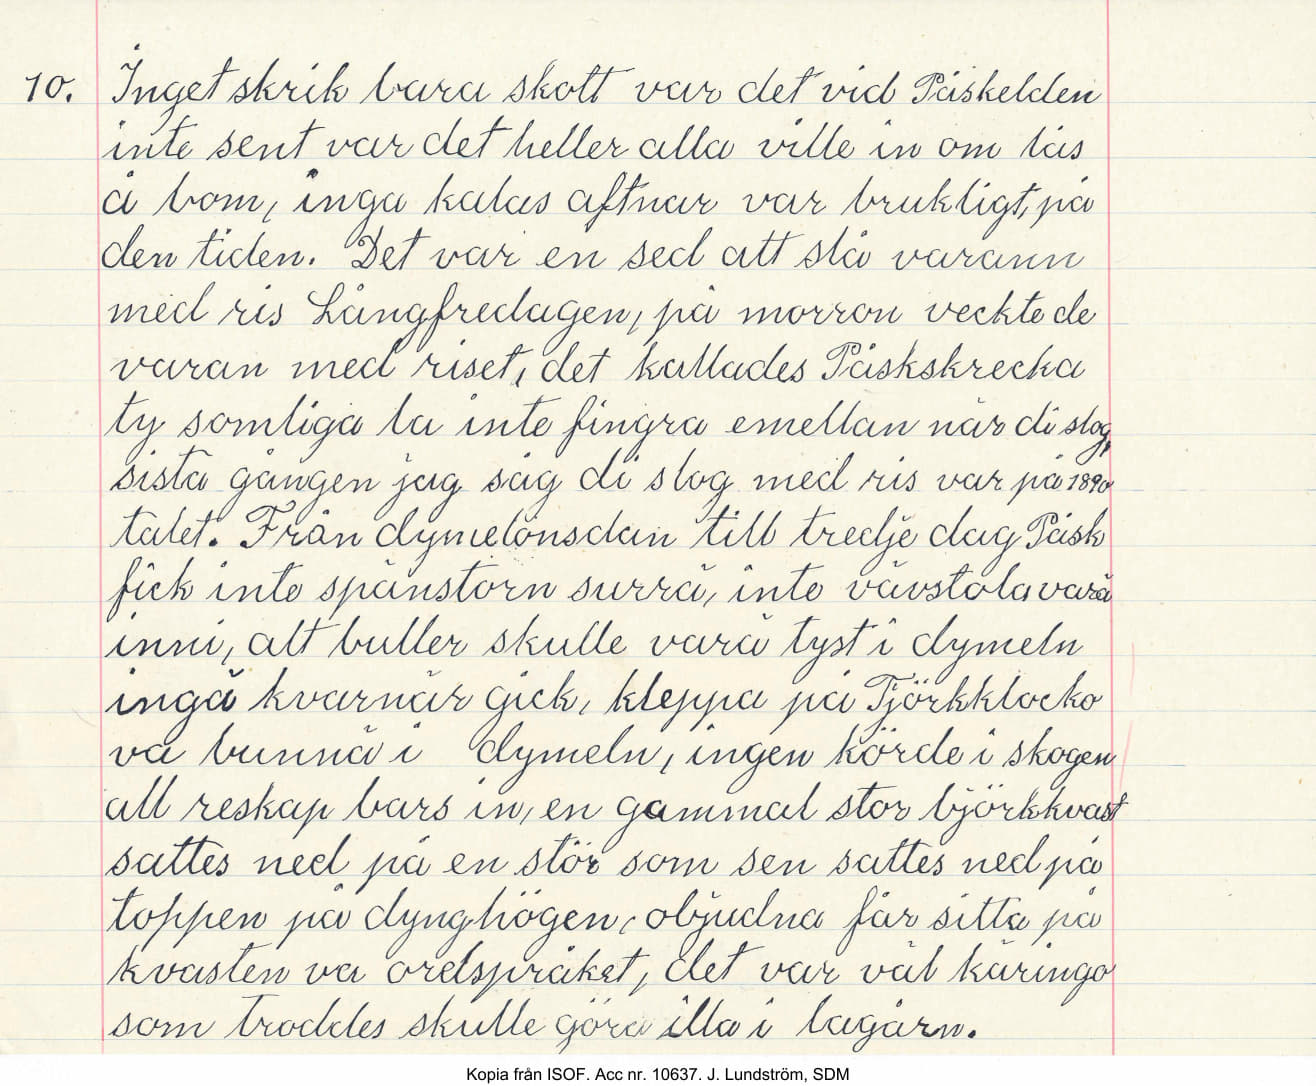 10. Inget skrik bara skott var det vid Påskelden
inte sent var det heller alla ville in om lås
å bom, inga kalas aftnar var brukligt, på
den tiden. Det var en sed att slå varann
med ris Långfredagen, på morron veckte de
varan med riset, det kallades Påskskrecka
ty somliga la inte fingra emellan när di slog,
sista gången jag såg di slog med ris var på 1890
talet. Från dymelonsdan till tredje dag Påsk
fick inte spånstorn surrä, inte vävstola varä
inni, alt buller skulle varä tyst i dymeln
ingä kvarnär gick, kleppa på Tjörkklocko
va bunnä i dymeln, ingen körde i skogen
all reskap bars in, en gammal stor björkkvast
sattes ned på en stör som sen sattes ned på
toppen på dynghögen, objudna får sitta på
kvasten va ordspråket, det var väl käringo
som troddes skulle göra illa i lagårn.
Kopia från ISOF. Acc nr. 10637. J. Lundström, SDM